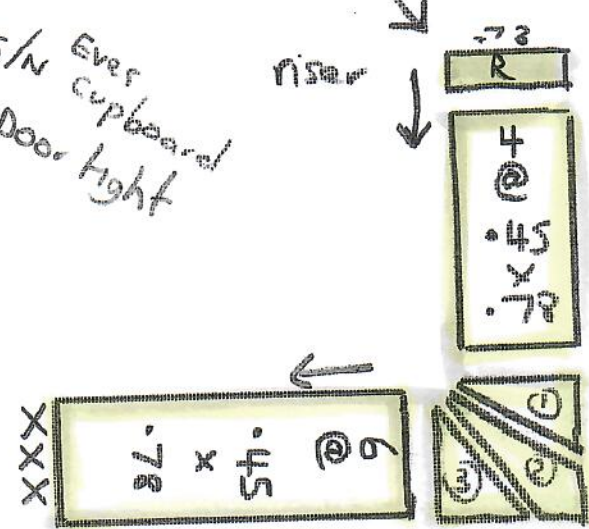 S/N Ever
Cupboard
Door tight
riser
.78
R
4
@
.45
x
.78
①
②
③
6
@
.45
x
.78
XXX